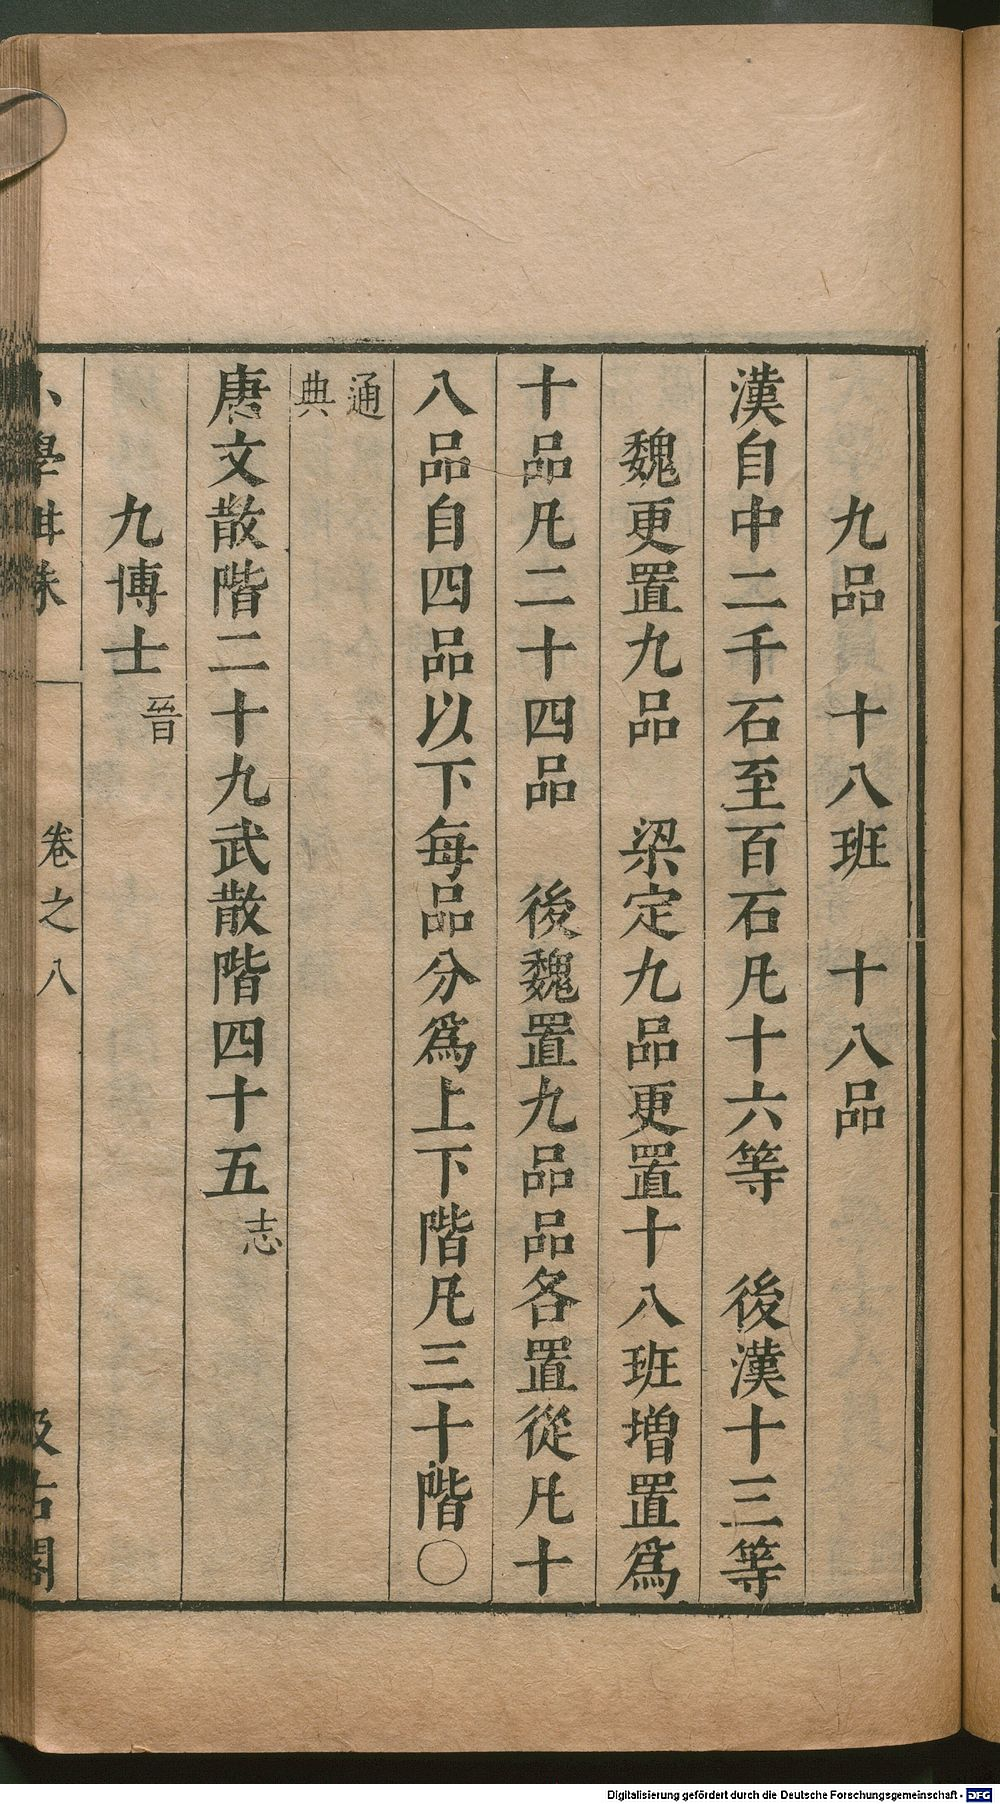 九品　十八班　十八品
漢自中二千石至百石凡十六等　後漢十三等
魏更置九品　梁定九品更置十八班增置爲
十品凡二十四品　後魏置九品品各置從凡十
八品自四品以下每品分爲上下階凡三十階〇
通
典
唐文散階二十九武散階四十五志
九博士晉
小學紺珠　卷之八　汲古閣
Digitalisierung gefördert durch die Deutsche Forschungsgemeinschaft - DFG